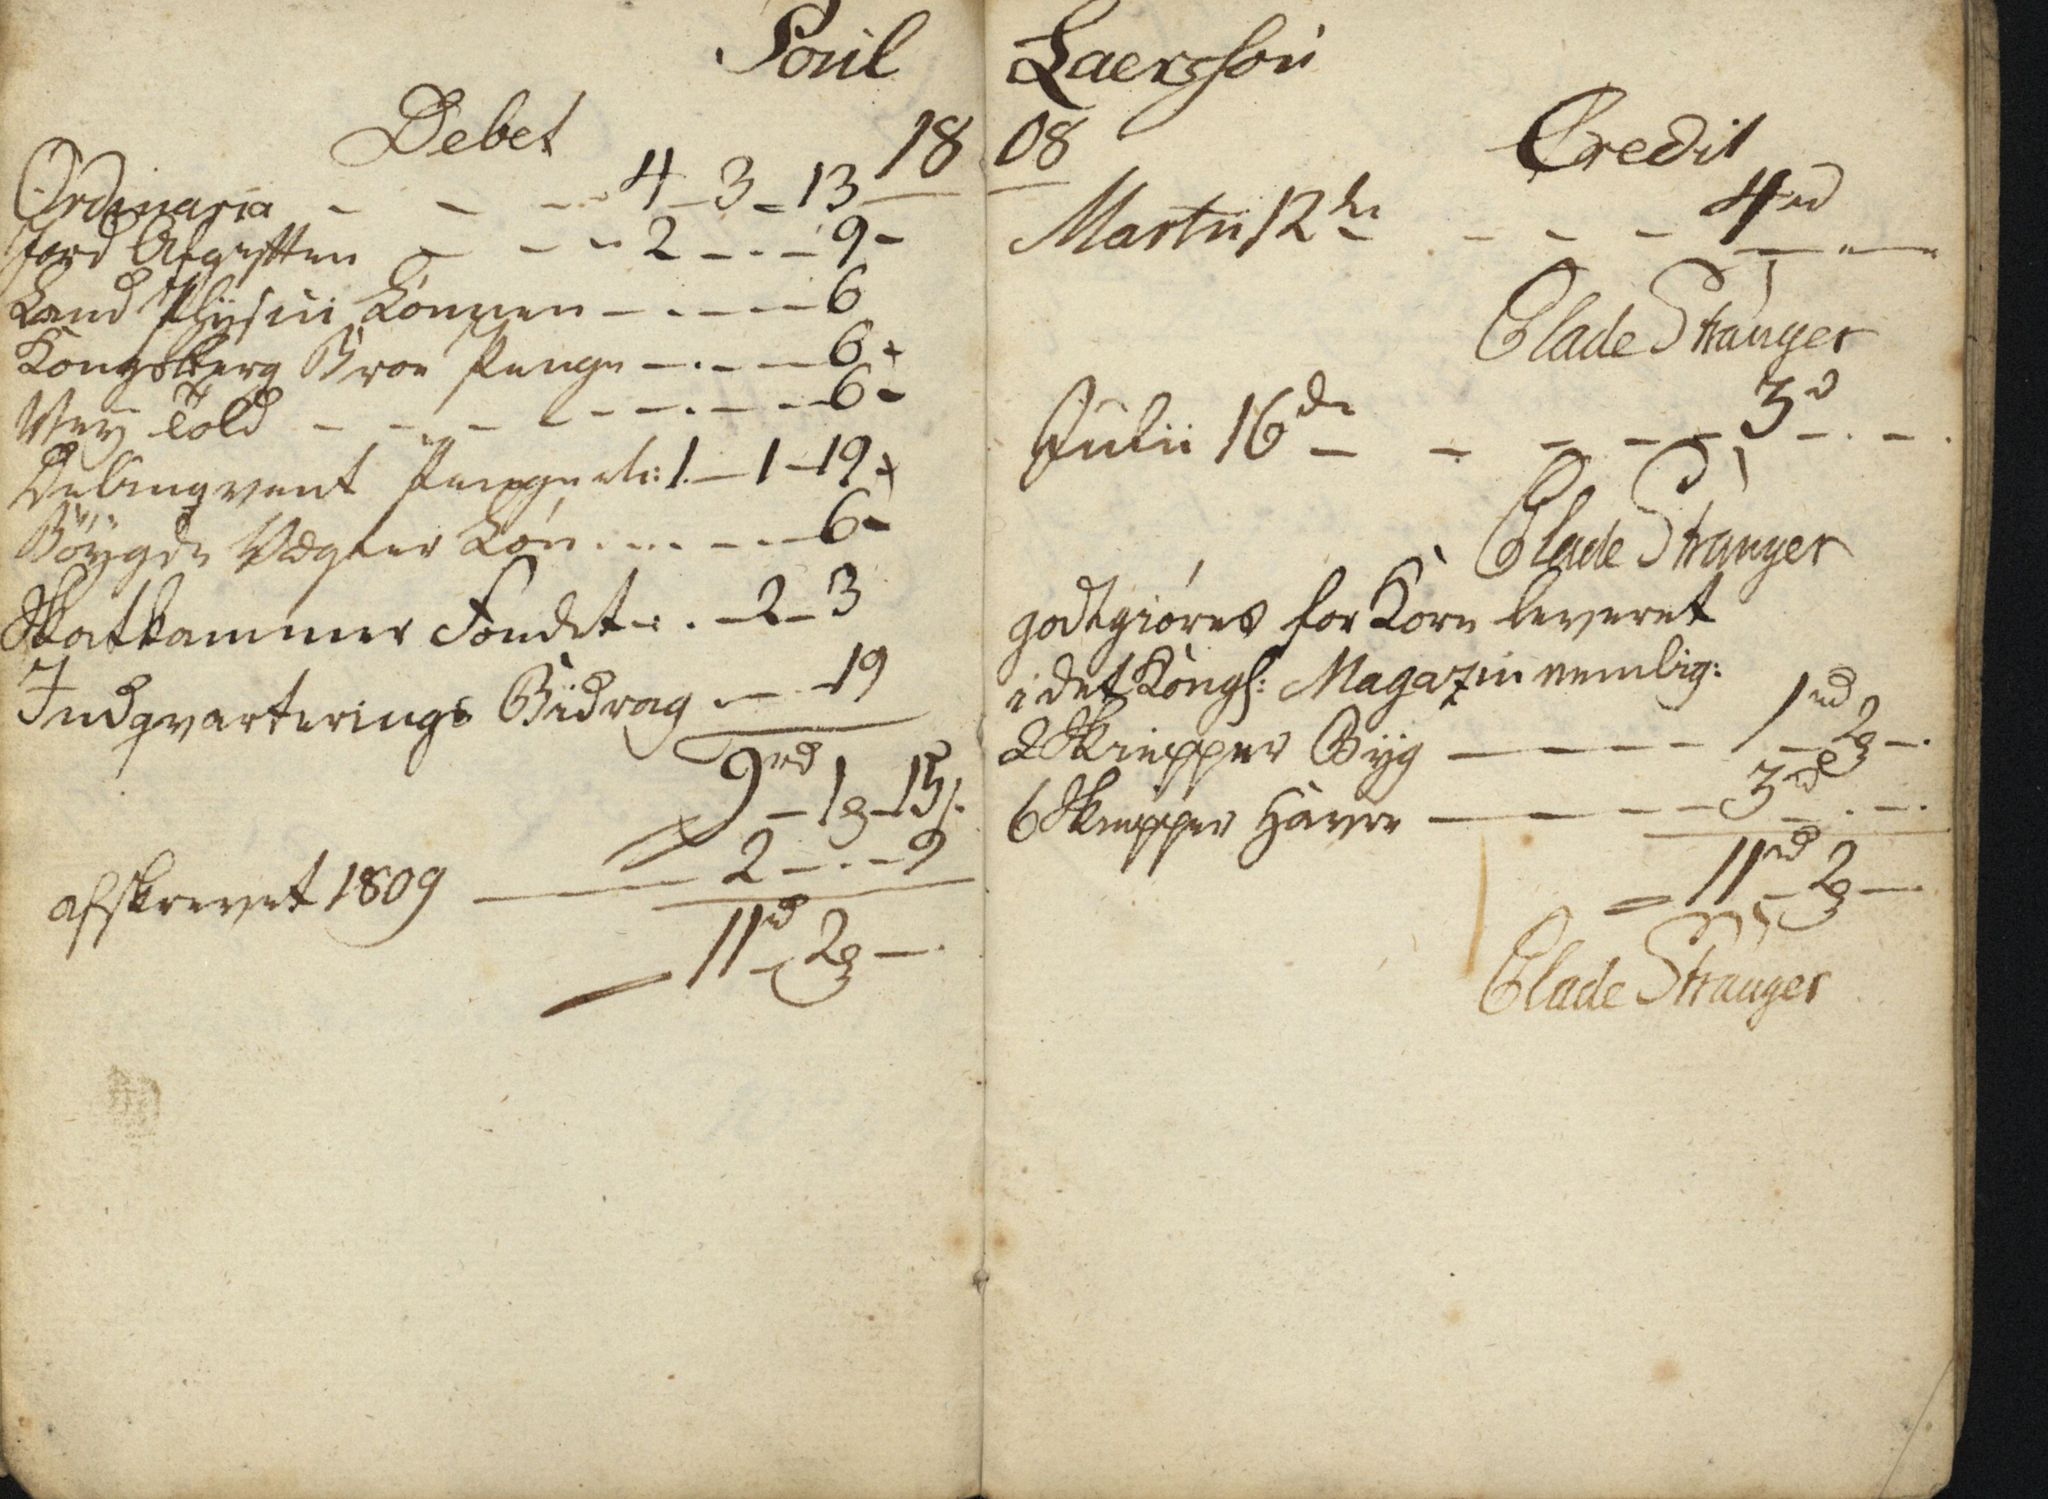 Poul Laersøn
Debet 1808 Credit
Ordinaria - - - 4 - 3 - 13
Jord Afgiften - - - 2 - . - 9 -
Land Physici Lønnen - . - . - 6
Kongsberg Broe Penge - . - - 6
Vey Told - - - - - - . - - 6 -
Delinqvent Penge 1 - 1 - 19
Bøygde Vægter Løn . . . - . - 6 -
Skatkammer Fondet - . . - 2 - 3
Indqvarterings Bidrag . - . - 19
9rd - 1 - 15 s.
afskrevet 1809 — 2 - . - 9
11rd - 2 - .
Martii 12te - - - - 4rd
Elade Stranger
Julii 16de - - - - - 3rd - . - .
Elade Stranger
godtgiøres for Korn leveret
i det Kongl: Magazin nemlig:
2 Skiepper Byg — - - - 1rd - 2 - .
6 Skiepper Havre — - - - 3rd - . - .
11rd - 2 - .
Elade Stranger